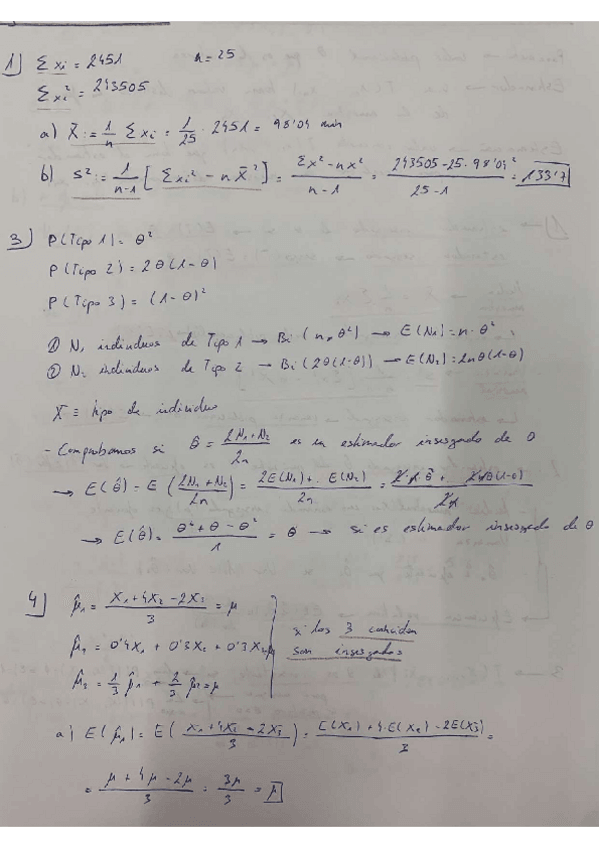 1) Σxi = 2451   n = 25
Σxi² = 243505
a) X̄ := 1/n Σxi = 1/25 · 2451 = 98'04 min
b) S² := 1/n-1 [Σxi² - n X̄²] = Σx² - nx̄² / n-1 = 243505 - 25 · 98'04² / 25-1 = 133'7
3) P(Tipo 1) = θ²
P(Tipo 2) = 2θ(1-θ)
P(Tipo 3) = (1-θ)²
① N₁ individuos de Tipo 1 → Bi(n, θ²) → E(N₁) = n·θ²
② N₂ individuos de Tipo 2 → Bi(2θ(1-θ)) → E(N₂) = 2nθ(1-θ)
X ≡ tipo de individuo
- Comprobamos si θ̂ = 2N₁+N₂ / 2n es un estimador insesgado de θ
→ E(θ̂) = E(2N₁+N₂ / 2n) = 2E(N₁) + E(N₂) / 2n = 2·n·θ² + 2nθ(1-θ) / 2n
→ E(θ̂) = θ² + θ - θ² / 1 = θ → si es estimador insesgado de θ
4) μ̂₁ = X₁+4X₂-2X₃ / 3 = μ
μ̂₂ = 0'4X₁ + 0'3X₂ + 0'3X₃ μ
si los 3 coinciden
son insesgados
μ̂₃ = 1/3 μ̂₁ + 2/3 μ̂₂ = μ
a) E(μ̂₁) = E(X₁+4X₂-2X₃ / 3) = E(X₁)+4·E(X₂)-2E(X₃) / 3 =
= μ + 4μ - 2μ / 3 = 3μ / 3 = μ